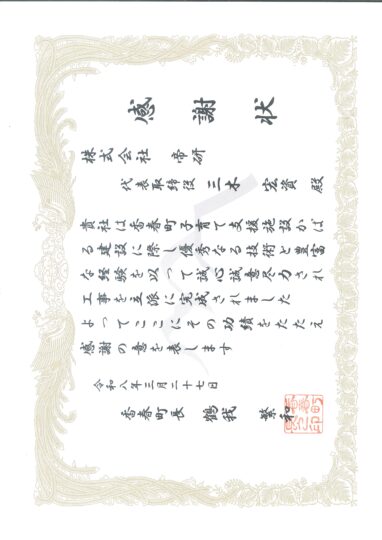 感謝状
株式会社 帝研
代表取締役 三木 宏資 殿
貴社は香春町子育て支援施設かば
る建設に際し優秀なる技術と豊富
な経験を以って誠心誠意尽力され
工事を立派に完成されました
よってここにその功績をたたえ
感謝の意を表します
令和八年三月二十七日
香春町長 鶴我 繁和